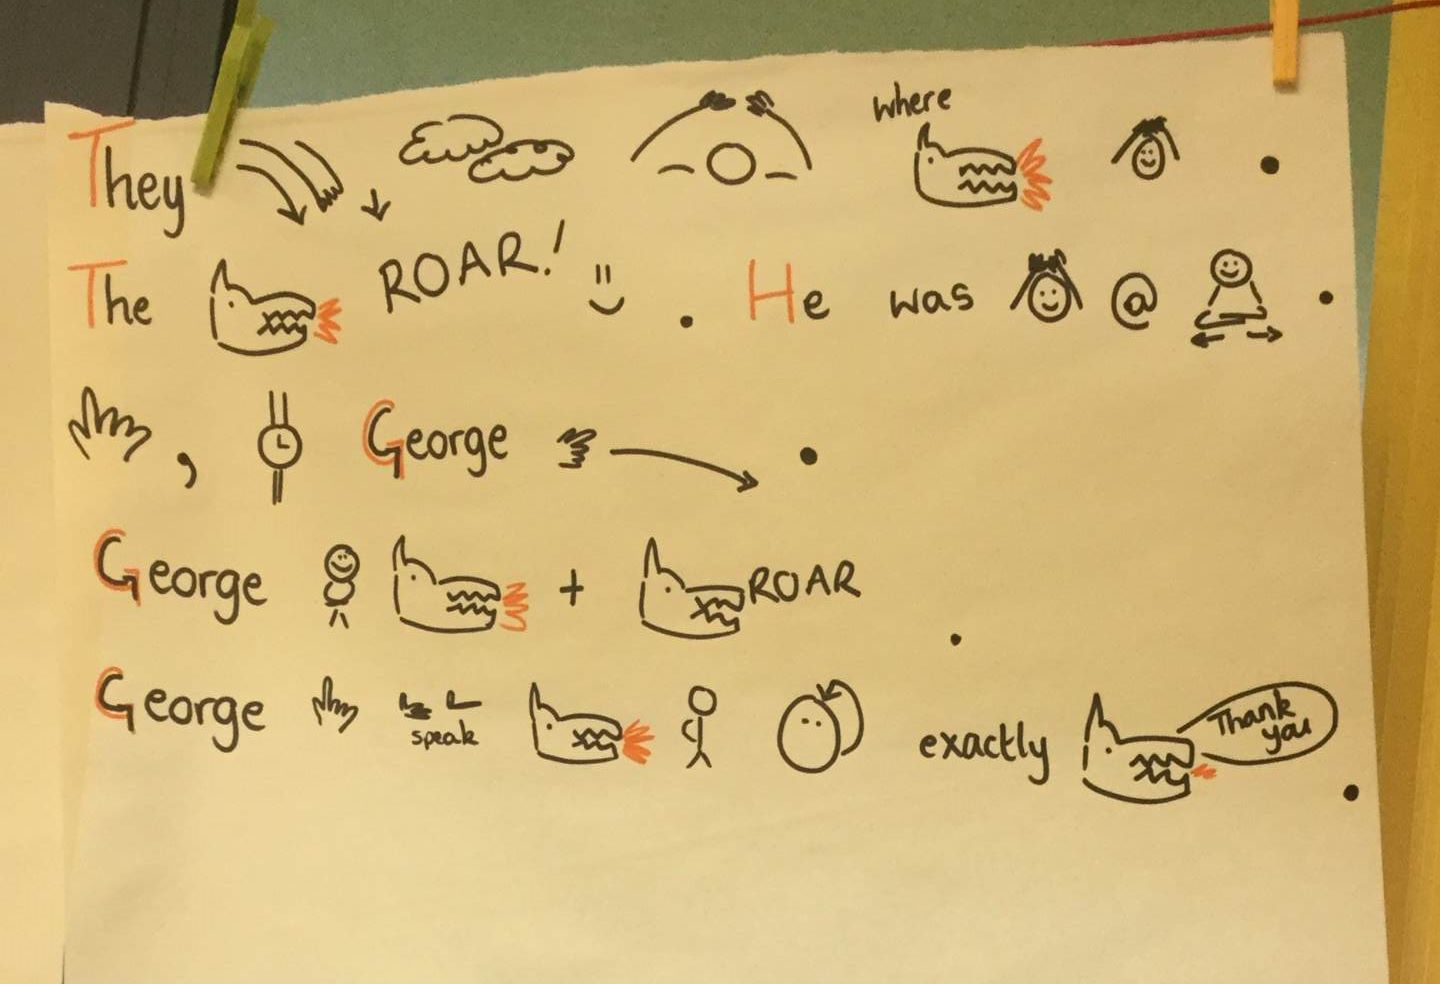 They where .
The ROAR! . He was @ .
, George .
George + ROAR .
George speak exactly Thank you .